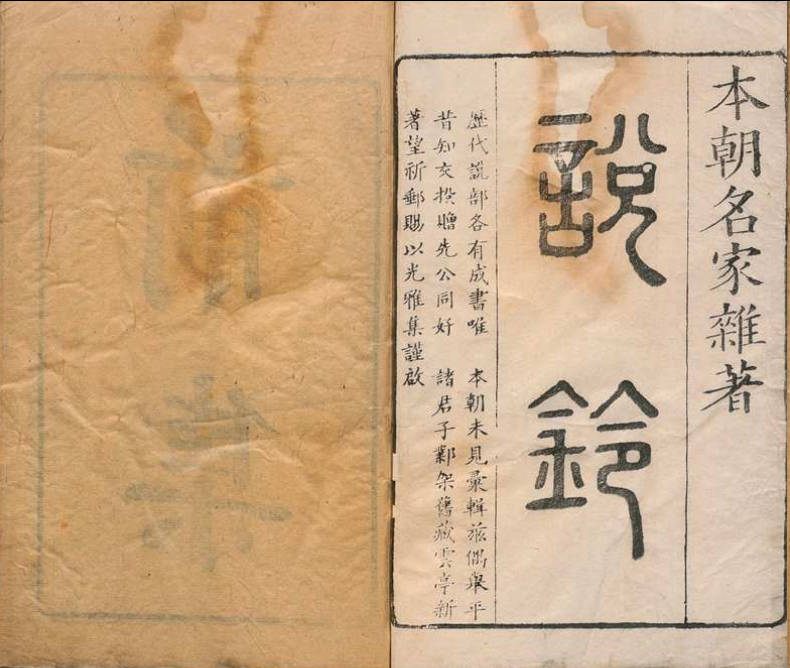 本朝名家雜著
說鈴
歷代說部各有成書唯　本朝未見彙輯茲偶舉平
昔知交投贈先公同好　諸君子鄴架舊藏雲亭新
著望祈郵賜以光雅集謹啟